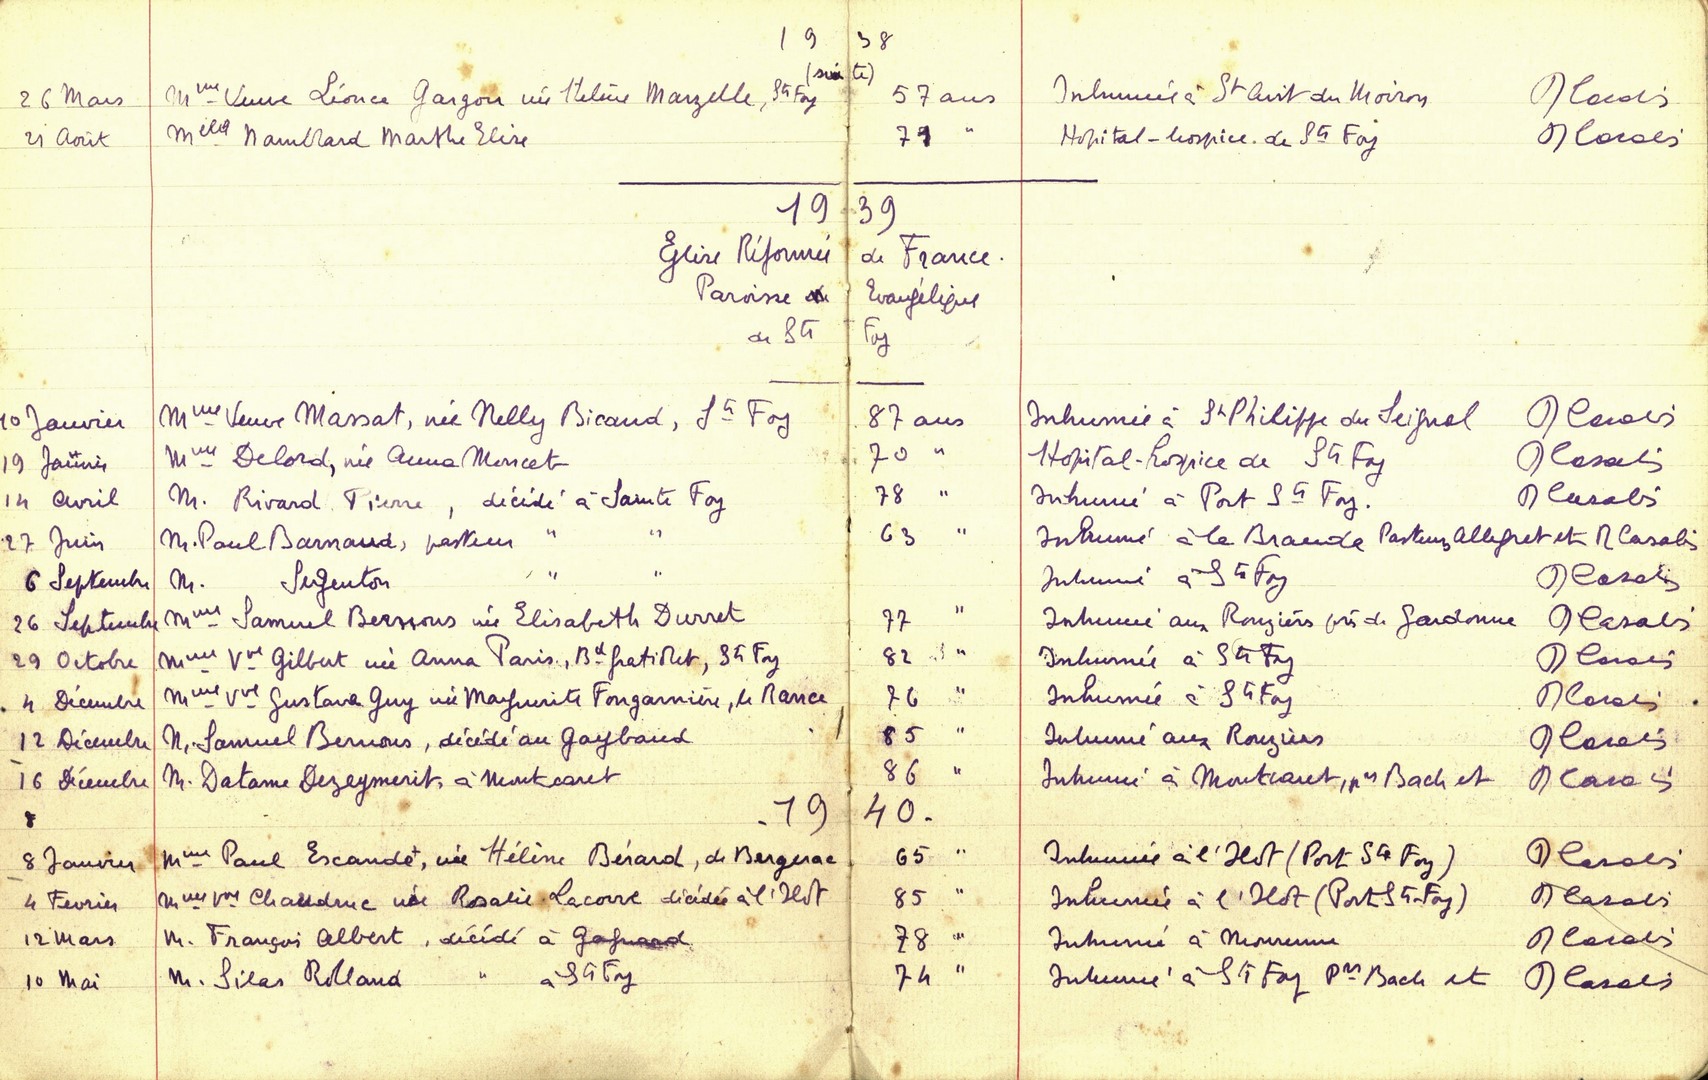 19 38
(suite)
26 Mars Mme Veuve Léonce Gargou née Hélène Marzelle, Ste Foy 57 ans Inhumée à St Avit du Moiron R Casalis
21 Août Melle Marthe Elise 71 " Hopital-hospice de Ste Foy R Casalis
19 39
Eglise Réformée de France.
Paroisse Evangélique
de Ste Foy
10 Janvier Mme Veuve Massat, née Nelly Bicaud, Ste Foy 87 ans Inhumée à St Philippe du Seignal R Casalis
19 Mme Delord, née Anna Moncet 70 " Hopital-hospice de Ste Foy R Casalis
14 Avril M. Rivard Pierre, décédé à Sainte Foy 78 " Inhumé à Port Ste Foy. R Casalis
27 Juin M. Paul Barnaud, pasteur " " 63 " Inhumé à la Braude Pasteurs Allegret et R Casalis
6 Septembre M. Sergenton " " Inhumé à Ste Foy R Casalis
26 Septembre Mme Samuel née Elisabeth Durret 77 " Inhumé aux Rouziers près de Gardonne R Casalis
29 Octobre Mme Vve Gilbert née Anna Paris, Bd Gratiolet, Ste Foy 82 " Inhumée à Ste Foy R Casalis
4 Décembre Mme Vve Gustave Guy née Marguerite Fongarnière, la Rance 76 " Inhumée à Ste Foy R Casalis
12 Décembre M. Samuel Bernous, décédé au Gaybaud 85 " Inhumé aux Rouziers R Casalis
16 Décembre M. Datame Dezeymerit, à Montcaret 86 " Inhumé à Montcaret, prs Bach et R Casalis
8 -19 40-
8 Janvier Mme Paul Escande, née Hélène Bérard, de Bergerac 65 " Inhumée à l'Ilot (Port Ste Foy) R Casalis
4 Fevrier Mme Vve Chaudruc née Rosalie Lacorre décédée à l'Ilot 85 " Inhumée à l'Ilot (Port Ste-Foy) R Casalis
12 Mars M. François Albert, décédé à 78 " Inhumé à R Casalis
10 Mai M. Silas Rolland " à Ste Foy 74 " Inhumé à Ste Foy Prs Bach et R Casalis